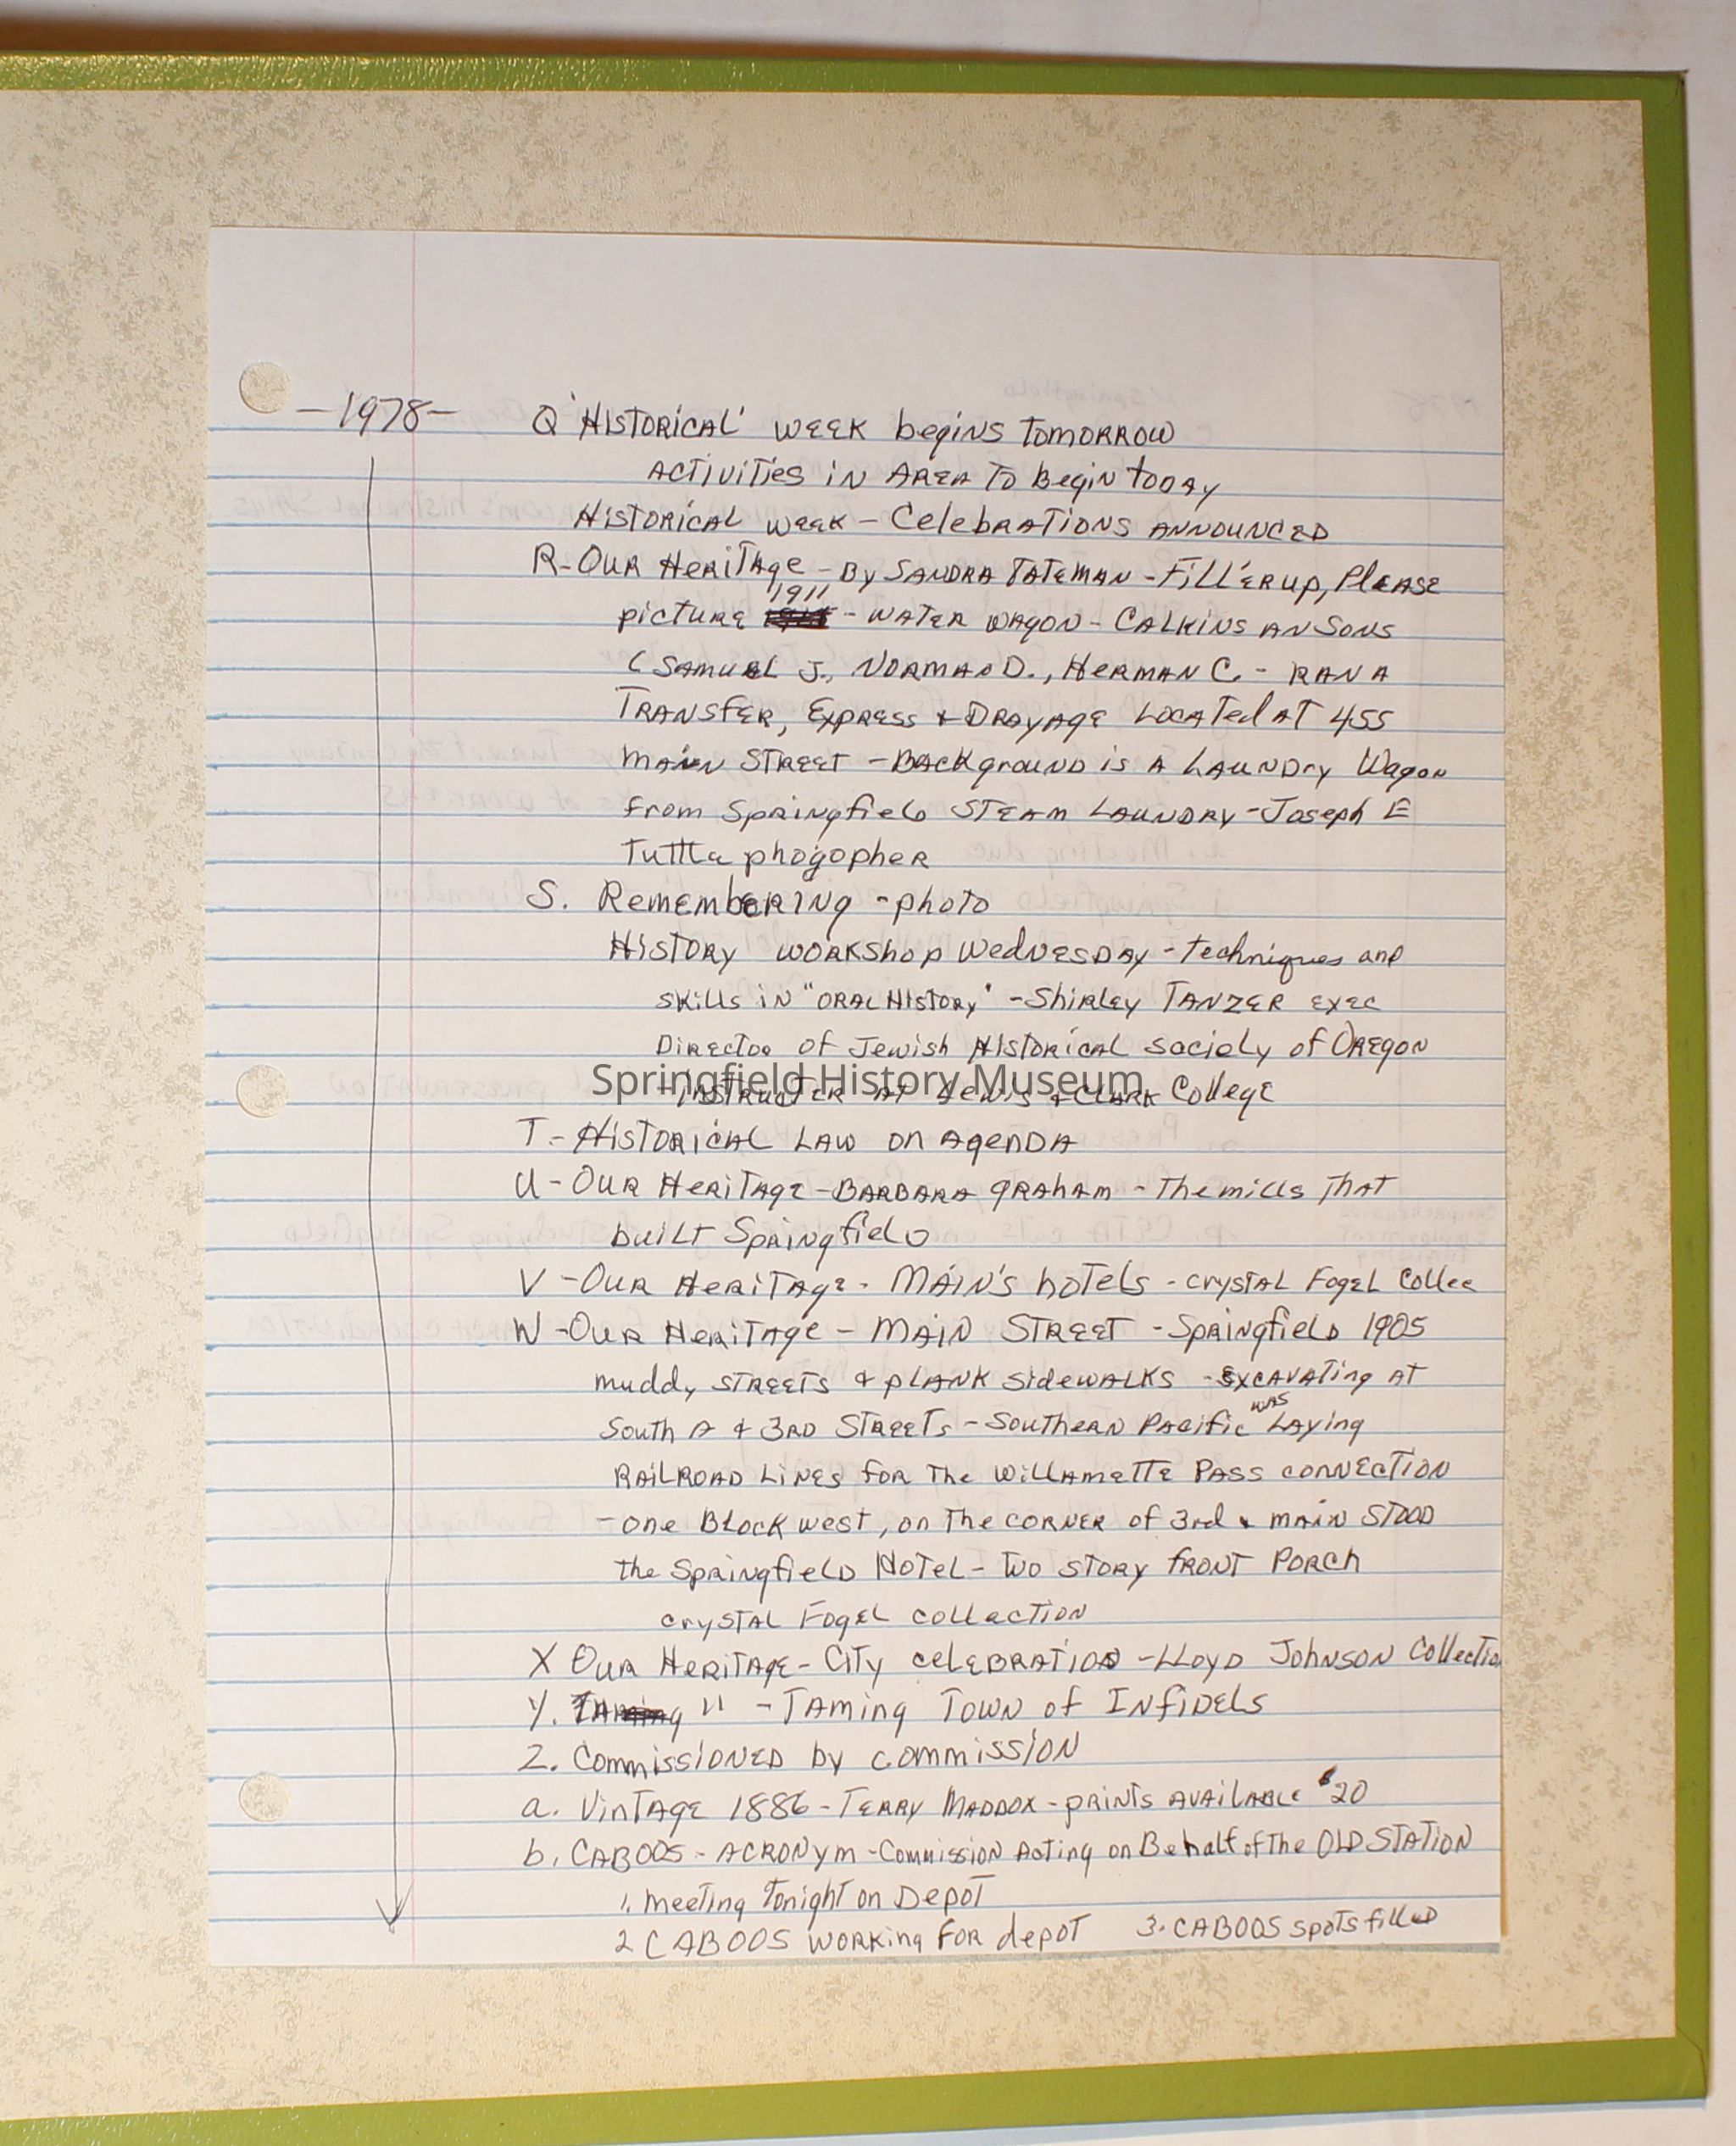 -1978- Q 'Historical' week begins tomorrow
Activities in Area To Begin today
Historical week - Celebrations announced
R- Our Heritage - By Sandra Tateman - Fill'er up, Please
picture 1911 - water wagon - Calkins an Sons
(Samuel J., Norman D., Herman C. - ran a
Transfer, Express & Drayage Located at 455
Main Street - Background is a Laundry Wagon
from Springfield Steam Laundry - Joseph E
Tuttla phogopher
S. Remembering - photo
History workshop Wednesday - techniques and
skills in "Oral History" - Shirley Tanzer exec
Director of Jewish Historical Society of Oregon
Springfield History Museum
- Instructer at Lewis & Clark College
T.- Historical Law on agenda
U - Our Heritage - Barbara Graham - The mills that
built Springfield
V - Our Heritage - Main's hotels - crystal Fogel Collec
W - Our Heritage - Main Street - Springfield 1905
muddy streets & plank sidewalks - excavating at
South A & 3rd Streets - Southern Pacific was Laying
Railroad Lines for The Willamette Pass connection
- one Block west, on The corner of 3rd & main stood
the Springfield Hotel - two story front Porch
crystal Fogel collection
X Our Heritage - City celebration - Lloyd Johnson Collectio
Y. " - Taming Town of Infidels
Z. Commissioned by commission
a. Vintage 1886 - Terry Maddox - prints available $20
b. CABOOS - Acronym - Commission Acting on Behalf of The OLD STATION
1. meeting Tonight on Depot
2 CABOOS working for depot 3. CABOOS spots filled